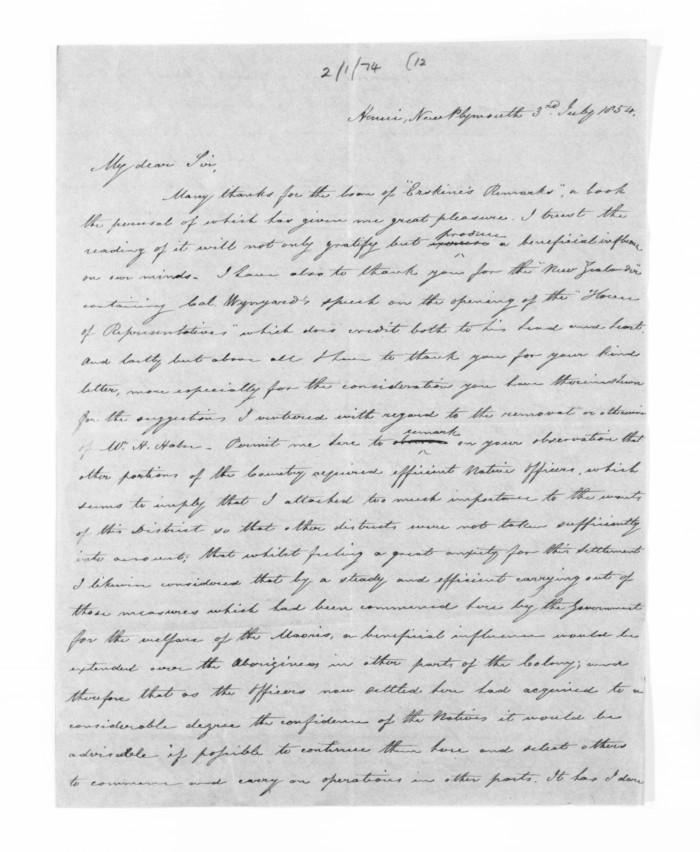 2/1/74 (12
Henui, New Plymouth 3rd July 1854.
My dear Sir,
Many thanks for the loan of "Erskine's Remarks", a book
the perusal of which has given me great pleasure. I trust the
reading of it will not only gratify but produce a beneficial influence
on our minds. I have also to thank you for the "New Zealander"
containing Col. Wynyard's speech on the opening of the "House
of Representatives" which does credit both to his head and heart
And lastly but above all I have to thank you for your kind
letter, more especially for the consideration you have therein shewn
for the suggestions I ventured with regard to the removal or otherwise
of Mr. H. Halse - Permit me here to remark on your observation that
other portions of the Country required efficient Native Officers, which
seems to imply that I attached too much importance to the wants
of this District so that other districts were not taken sufficiently
into account; that whilst feeling a great anxiety for this settlement
I likewise considered that by a steady and efficient carrying out of
those measures which had been commenced here by the Government
for the welfare of the Maoris, a beneficial influence would be
extended over the Aborigines in other parts of the Colony; and
therefore that as the Officers now settled here had acquired to a
considerable degree the confidence of the Natives it would be
advisable if possible to continue them here and select others
to commence and carry on operations in other parts. It has I dare